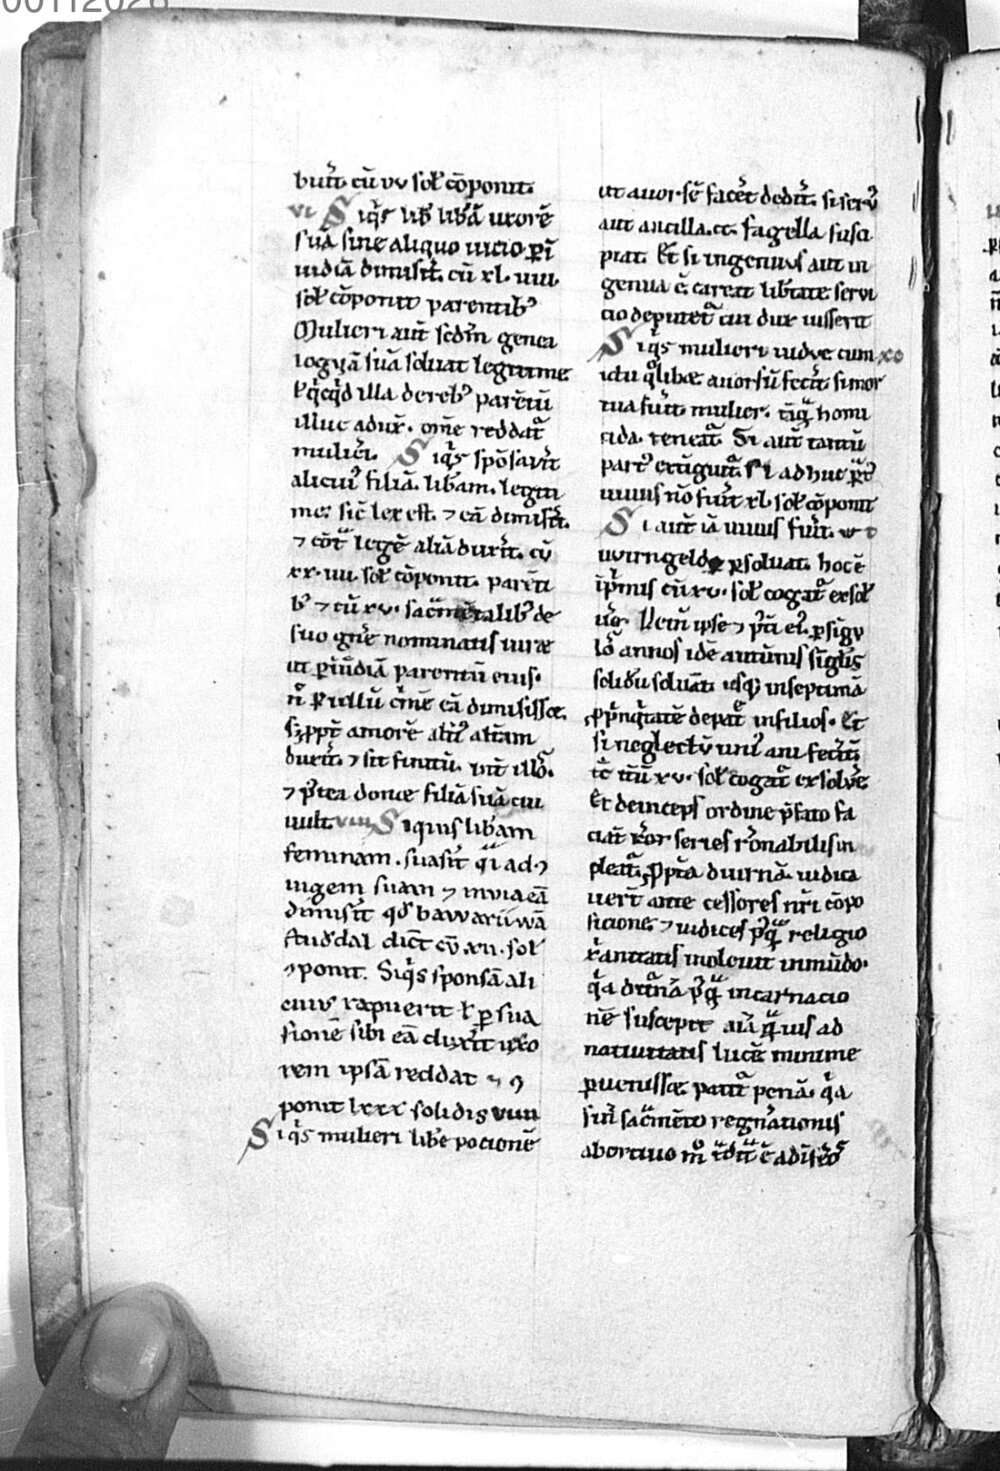 buit̄. cū vv sol̄ cōponit.
vi Siq̇s lib̄ lib̄ā uxorē
suā sine aliquo uicio ꝑ ī
uidiā dimisit̄. cū xl. uiii
sol̄ cōponit parentibꝰ
Mulieri aut̄ scdm̄ genea
logyā suā soluat legitime
illuc adux̄. om̄e reddat᷑
mulieri. Siq̇s spōsauit̄
alicuiꝰ filiā. lib̄am. legiti
me: sic̄ lex est. ⁊ eā dimisit̄.
⁊ cōt̄ legē aliā duxit̄. cū
xx. iiii. sol̄ cōponit. parēti
bꝰ ⁊ cū xv. sac̄mētalibꝰ de
suo gn̄e nominatis iuræ
ut ꝑ inuidiā parentū eius.
n̄ ꝑ ullū c̄mē eā dimisisset.
sꝫ ppt̄ amorē altiꝰ alt̄am
duxit̄. ⁊ sit finitū. int̄ illos̄.
⁊ p̄tea donæ filiā suā cui
uult viiii Siquis lib̄am
feminam. suasit̄ q̄i ad ꝯ
iugem suam ⁊ in uia eā
dimisit̄ qd̄ bawarii wā
cludal dic̄t cū xii. sol̄
ꝯponit. Siq̇s sponsā ali
cuiꝰ rapuerit l̄ ꝑ sua
sionē sibi eā duxit̄ uxo
rem ipsā reddat ⁊ ꝯ
ponit lxxx solidis viiii
Siq̇s mulieri libē pocionē
ut auorsē facēt dedit̄. si seruꝰ
aut ancilla. cc. flagella susci
piat. Et si ingenuus aut in
genua ē. careat lib̄tate servi
cio deputet᷑ cui dux iusserit
Siq̇s mulieri iudve cum xo
ictu q̊libæ auorsū fecit̄. si mor
tua fuit̄ mulier. tāq̄ homi
cida. teneat᷑. Si aut̄ tantū
partꝰ extīguit᷑. si adhuc ꝑtꝰ
uiuus nō fuit̄ xl. sol̄ cōponit
Si aut̄ iā uiuus fuit̄.
uuirngeldo ꝑsoluat. hoc ē
īpͥmis cū xv. sol̄ cogat᷑ exsol
ꝑ sīgv
lōs annos idē autūnis sīgl̄is
solidū soluāt. usq̣ in septimā
ꝓpīnq̇tatē depat̄ in filios. Et
si neglectū uniꝰ ani fecit̄.
tc̄ itū xv. sol̄ cogat᷑ exsolvē
Et deinceps ordine p̄fato fa
ciat̄ q̊or series r̄onabilis in
pleat᷑. ꝓpt̄a diuīnā. iudica
uer̄t ante cessores nr̄i cōpo
sicione. ⁊ iudices p̄q̄ religio
xͥanitatis inoleuit in mūdo.
q̇a diut̄inā p̄q̄ incarnacio
nē suscepit aīa q̄uis ad
natiuitatis lucē minime
ꝑuenissæ patit᷑ penā. q̇a
sin̄ sac̄mēto regn̄ationis
abortiuo m̊ t̄dita ē ad īfēos